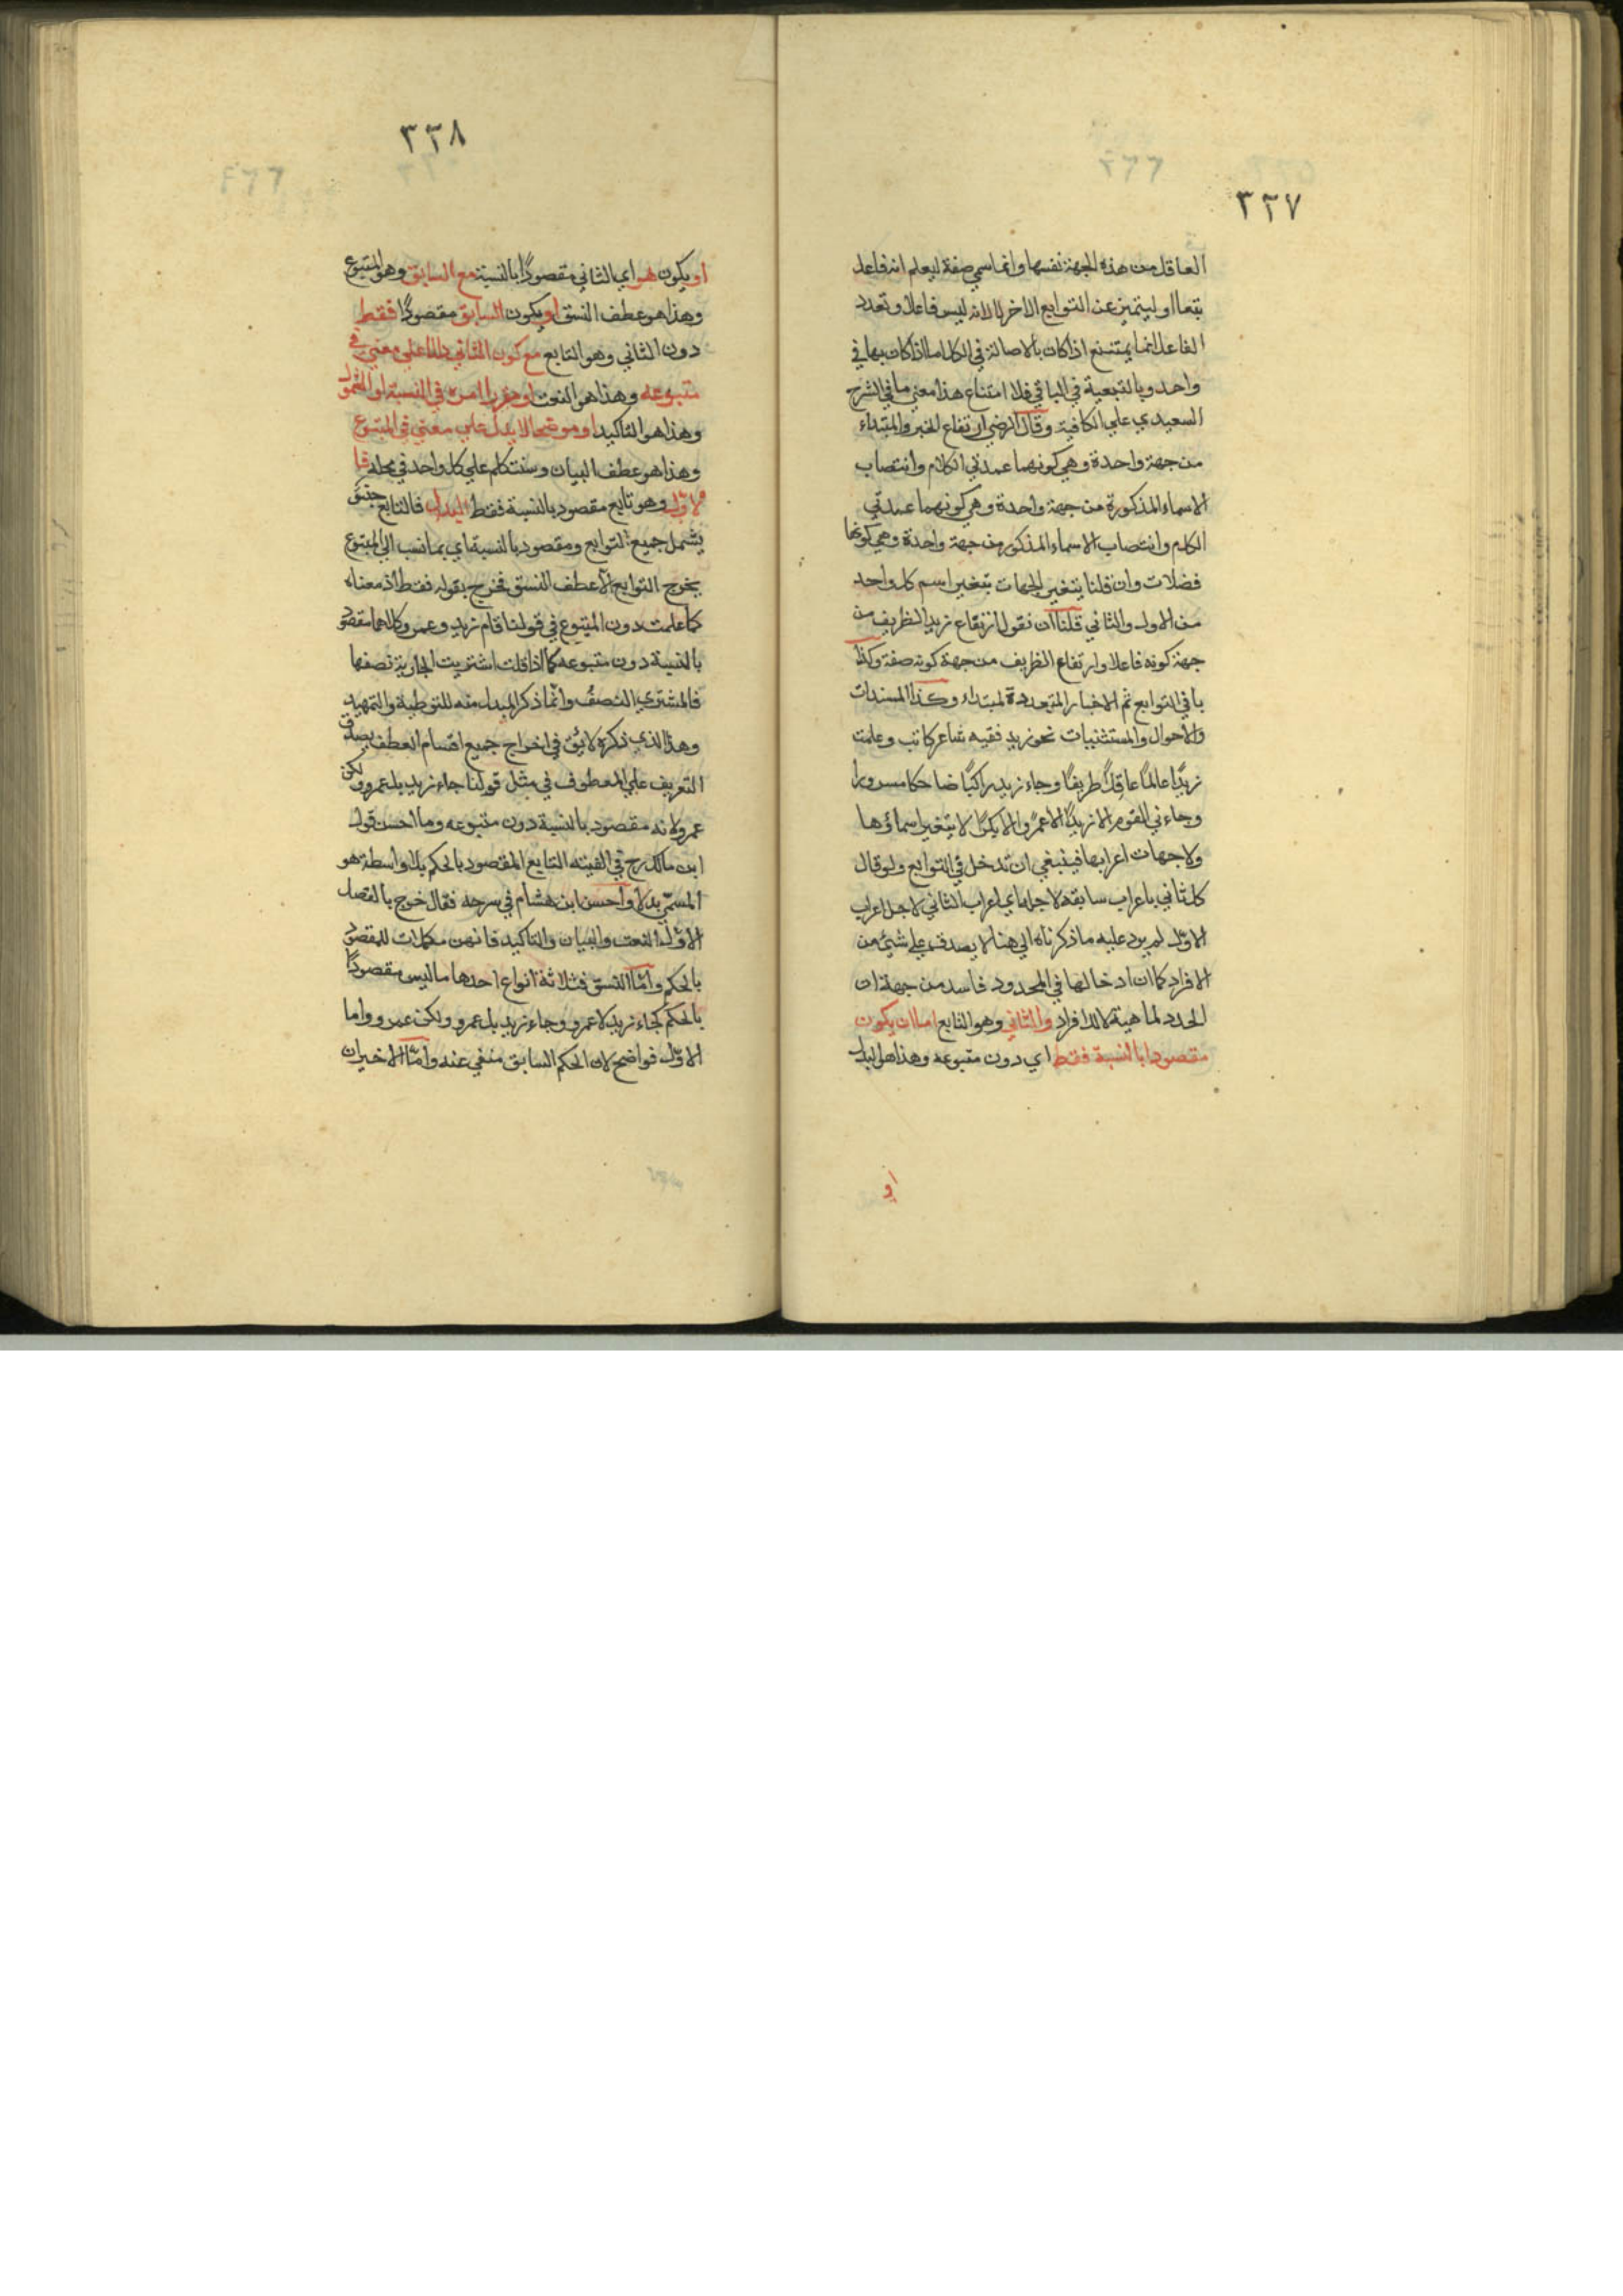 ٣٢٧
العاقل من هذه الجهة نفسها وانما سمي صفة ليعلم انه فاعل
تبعا او ليتميز عن التوابع الاخر لا لانه ليس فاعلا وتعدد
الفاعل انما يمتنع اذا كان بالاصالة في الكل اما اذا كان بها في
واحد وبالتبعية في الباقي فلا امتناع هذا معني ما في الشرح
السعيدي علي الكافية وقال الرضي ارتفاع الخبر والمبتداء
من جهة واحدة وهي كونهما عمدتي الكلام وانتصاب
الاسماء المذكورة من جهة واحدة وهي كونهما عمدتي
الكلام وانتصاب الاسماء المذكور من جهة واحدة وهي كونها
فضلات وان قلنا يتغير الجهات بتغير اسم كل واحد
من الاول والثاني قلنا ان نقول ارتفاع زيد الظريف من
جهة كونه فاعلا وارتفاع الظريف من جهة كونه صفة وكذا
باقي التوابع ثم الاخبار المتعددة لمبتداء وكذا المسندات
والاحوال والمستثنيات نحو زيد فقيه شاعر كاتب وعلمت
زيدًا عالمًا عاقلًا ظريفًا وجاء زيد راكبًا ضاحكا مسرورا
وجاءني القوم الا زيدًا الا عمرًا والا بكرًا لا يتغير اسماؤها
ولا جهات اعرابها فينبغي ان تدخل في التوابع ولو قال
كل ثاني باعراب سابقه لاجله اي اعراب الثاني لاجل اعراب
الاول لم يرد عليه ما ذكرناه الي هنا لا يصدق علي شيئ من
الافراد كما ان ادخالها في المحدود فاسد من جهة ان
الحدد لما هية لا للافراد والثاني وهو التابع اما ان يكون
مقصودا بالنسبة فقط اي دون متبوعه وهذا هو البدل
او
٣٢٨
او يكون هو اي الثاني مقصودًا بالنسبة مع السابق وهو المتبوع
وهذا هو عطف النسق او يكون السابق مقصودًا فقط
دون الثاني وهو التابع مع كون الثاني دالا علي معني في
متبوعه وهذا هو النعت او مقررا لامره في النسبة او الشمول
وهذا هو التاكيد او موضحا لا يدل علي معني في المتبوع
وهذا هو عطف البيان وسنتكلم علي كل واحد في محله فا
لاول وهو تابع مقصود بالنسبة فقط البدل فالتابع جنس
يشمل جميع التوابع ومقصود بالنسبة اي بما نسب الي المتبوع
يخرج التوابع الا عطف النسق فخرج بقوله فقط اذ معناه
كما علمت دون المتبوع في قولنا قام زيد وعمرو كلاهما مقصود
بالنسبة دون متبوعه كما اذا قلت اشتريت الجارية نصفها
فالمشتري النصف وانما ذكر المبدل منه للتوطية والتمهيد
وهذا الذي ذكره لا يق في اخراج جميع اقسام العطف يصدق
التعريف علي المعطوف في مثل قولنا جاء زيد بل عمرو ولكن
عمرو لانه مقصود بالنسبة دون متبوعه وما احسن قول
ابن مالك رح في الفيته التابع المقصود بالحكم بلا واسطة هو
المسمي بدلا واحسن ابن هشام في سرحه فقال خرج بالفصل
الاول النعت والبيان والتاكيد فانهن مكملات للمقصود
بالحكم واما النسق فثلاثة انواع احدها ما ليس مقصودًا
بالحكم كجاء زيد لا عمرو وجاء زيد بل عمرو ولكن عمرو واما
الاول فواضح لان الحكم السابق منفي عنه واما الاخيران